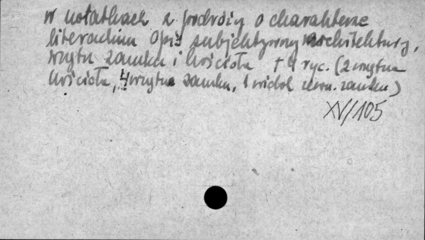 w notatkach z podróży o charakterze
literackim Opis subjektywny architektury,
wnętrz zamku i kościoła + 4 ryc. (2 wnętrza
kościoła, wnętrze zamku, 1 widok zewn. zamku)
XV/105